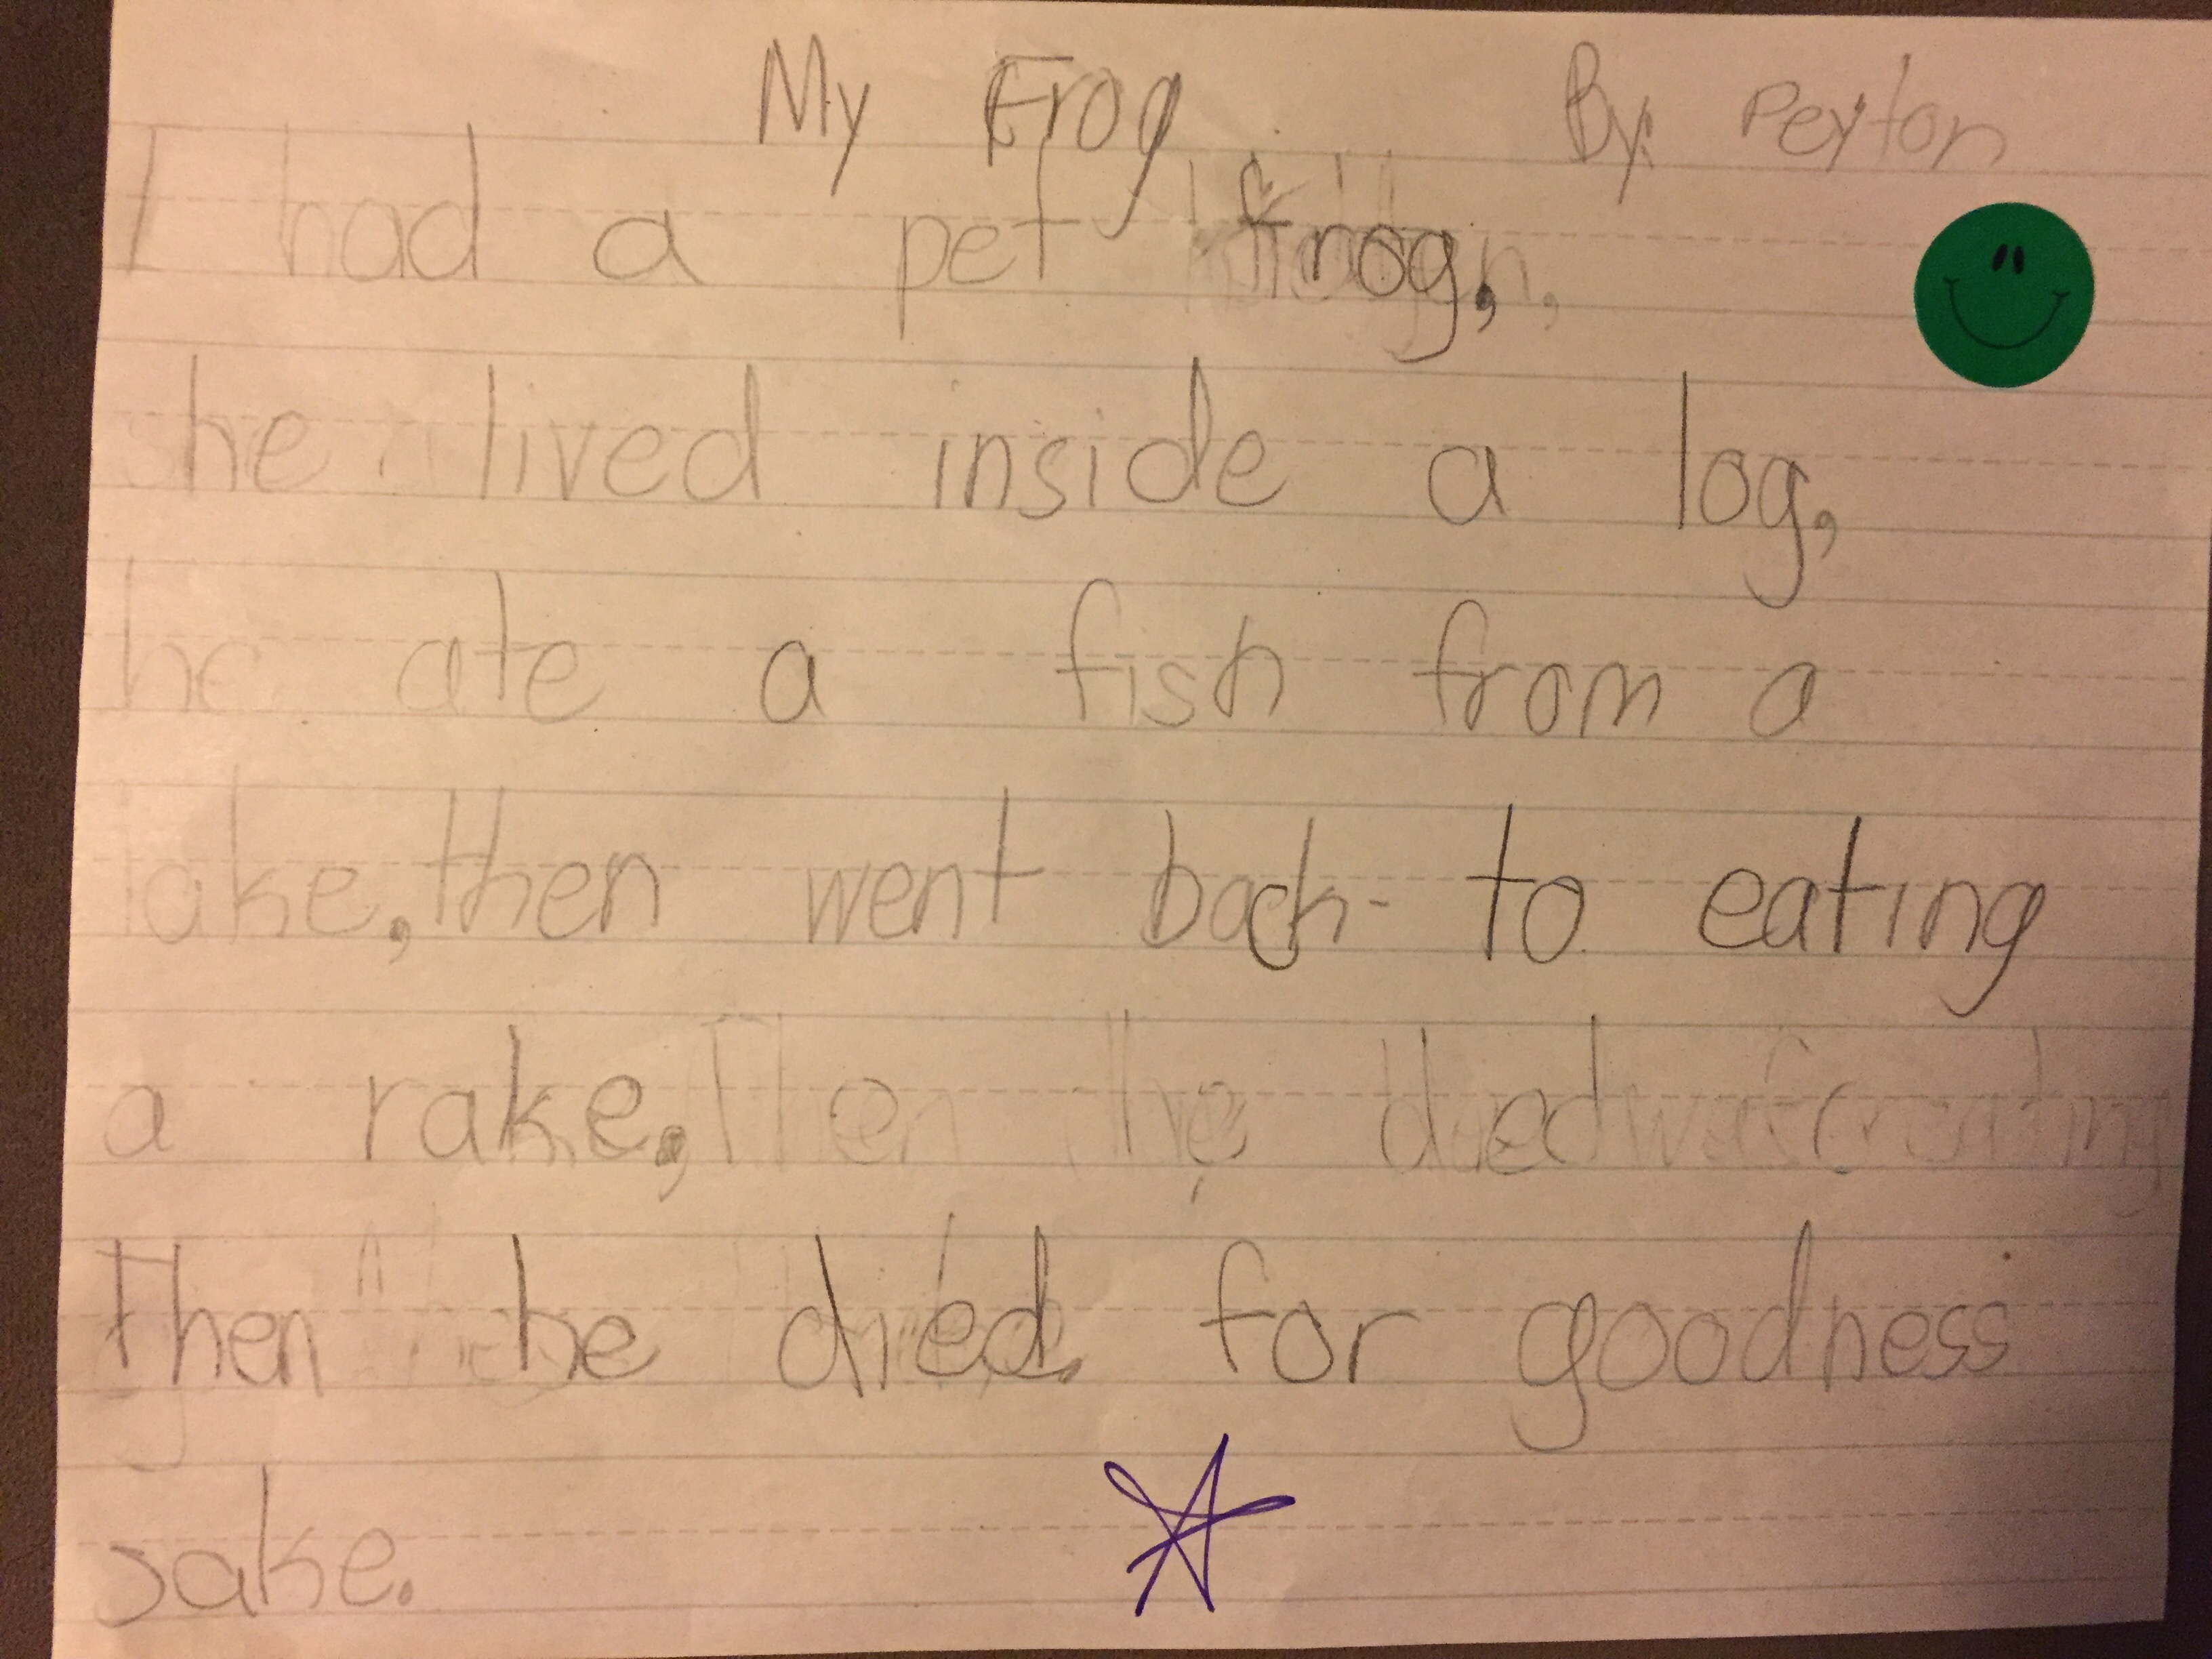 My Frog By: Peyton
I had a pet frog,
he lived inside a log,
he ate a fish from a
lake, then went back to eating
a rake,
Then he died for goodness
sake.